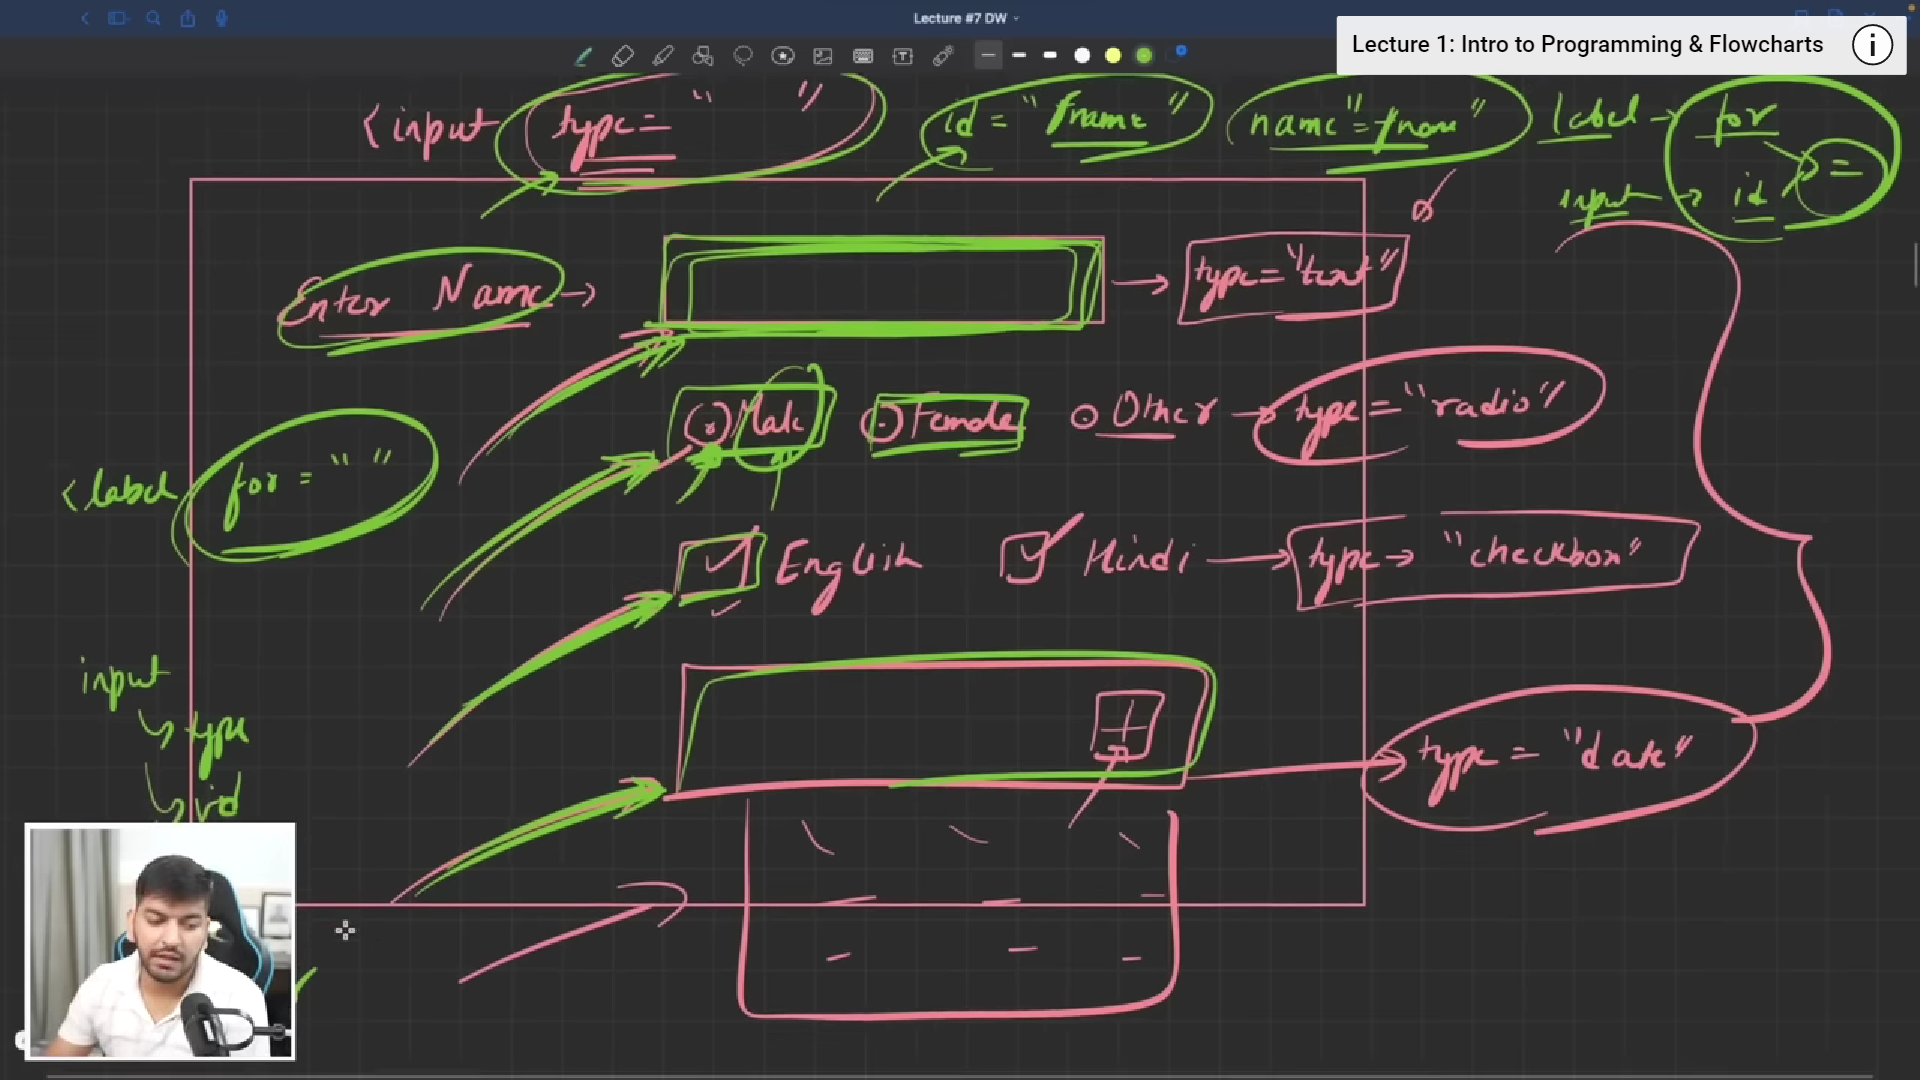 Lecture #7 DW
Lecture 1: Intro to Programming & Flowcharts
<input type= " " id = "fname" name"=fname" label → for
input → id =
Enter Name → → type="text"
Male Female Other → type="radio"
<label for = " "
English Hindi → type → "checkbox"
input
type
type = "date"
id